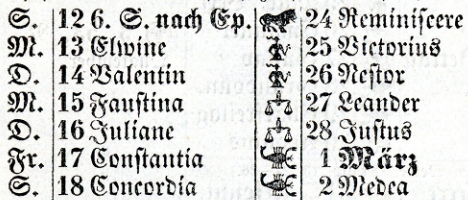 S. 12 6. S. nach Ep. 24 Reminiſcere
M. 13 Elwine 25 Victorius
D. 14 Valentin 26 Neſtor
M. 15 Fauſtina 27 Leander
D. 16 Juliane 28 Juſtus
Fr. 17 Conſtantia 1 März
S. 18 Concordia 2 Medea